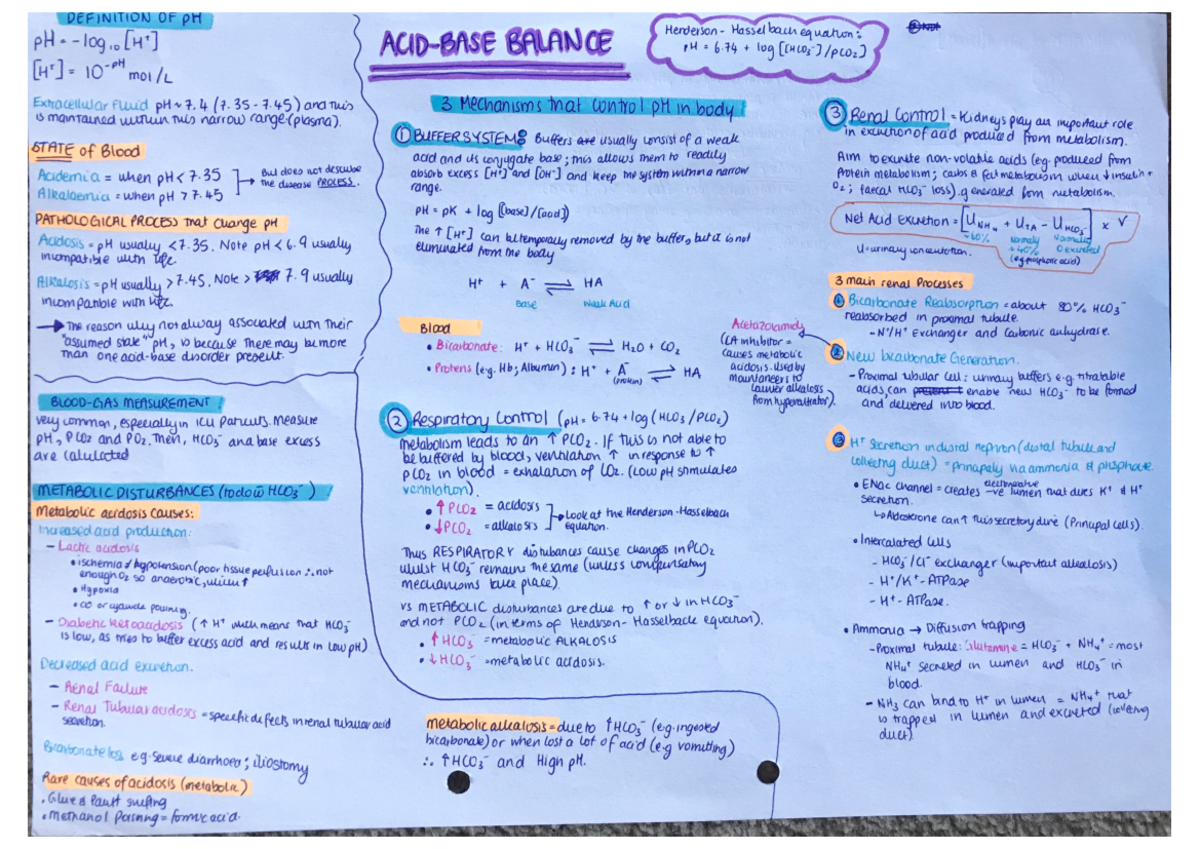 DEFINITION OF pH
pH = -log₁₀ [H⁺]
[H⁺] = 10^-pH mol/L
Extracellular Fluid pH ~ 7.4 (7.35 - 7.45) and this
is maintained within this narrow range (plasma).
STATE of Blood
Academia = when pH < 7.35
Alkalaemia = when pH > 7.45
But does not describe
the disease PROCESS.
PATHOLOGICAL PROCESS that change pH
Acidosis = pH usually < 7.35. Note pH < 6.9 usually
incompatible with life.
Alkalosis = pH usually > 7.45. Note > 7.9 usually
incompatible with life.
→ The reason why not alway associated with their
"assumed state" pH, is because there may be more
than one acid-base disorder present.
BLOOD-GAS MEASUREMENT
very common, especially in ICU patients. Measure
pH, PCO2 and PO2. Then, HCO3⁻ and base excess
are calculated
METABOLIC DISTURBANCES (to do w̄ HCO3⁻)
Metabolic acidosis causes:
Increased acid production:
- Lactic acidosis
• ischemia / hypotension (poor tissue perfusion ∴ not
enough O2 so anaerobic, which ↑
• Hypoxia
• CO or cyanide poisning.
- Diabetic Ketoacidosis (↑ H⁺ which means that HCO3⁻
is low, as tries to buffer excess acid and results in low pH)
Decreased acid excretion.
- Renal Failure
- Renal Tubular acidoses = specific defects in renal tubular acid
secretion.
Bicarbonate loss e.g. severe diarrhoea; iliostomy
Rare causes of acidosis (metabolic)
• Glue & Paint sniffing
• Methanol Poisning = formic acid.
ACID-BASE BALANCE
Henderson-Hasselbach equation:
pH = 6.74 + log [[HCO3⁻]/PCO2]
3 Mechanisms that control pH in body
① BUFFER SYSTEMS: Buffers are usually consist of a weak
acid and its conjugate base; this allows them to readily
absorb excess [H⁺] and [OH⁻] and keep the system within a narrow
range.
pH = pK + log ([base]/[acid])
The ↑ [H⁺] can be temporaly removed by the buffer, but it is not
eliminated from the body
H⁺ + A⁻ ⇌ HA
Base Weak Acid
Blood
• Bicarbonate: H⁺ + HCO3⁻ ⇌ H2O + CO2
• Protens (e.g. Hb; Albumen): H⁺ + A⁻ ⇌ HA
(protein)
Acetazolamide
(CA inhibitor =
causes metabolic
acidosis. Used by
mountaineers to
lower alkalosis
from hyperventilation).
② Respiratory Control (pH = 6.74 + log (HCO3/PCO2)
Metabolism leads to an ↑ PCO2. If this is not able to
be buffered by blood, ventilation ↑ in response to ↑
PCO2 in blood = exhalation of CO2. (Low pH stimulates
ventilation).
• ↑ PCO2 = acidosis
• ↓ PCO2 = alkalosis
Look at the Henderson-Hasselbach
equation.
Thus RESPIRATORY disturbances cause changes in PCO2
whilst HCO3⁻ remains the same (unless compensatory
mechanisms take place).
vs METABOLIC disturbances are due to ↑ or ↓ in HCO3⁻
and not PCO2 (in terms of Henderson-Hasselback equation).
• ↑ HCO3⁻ = metabolic ALKALOSIS
• ↓ HCO3⁻ = metabolic acidosis.
metabolic alkalosis = due to ↑HCO3⁻ (e.g. ingested
bicarbonate) or when lost a lot of acid (e.g vomitting)
∴ ↑HCO3⁻ and High pH.
③ Renal Control = Kidneys play an important role
in excretion of acid produced from metabolism.
Aim to excrete non-volatile acids (eg. produced from
Protein metabolism; carbs & fat metabolism when ↓ insulin +
O2; faecal HCO3⁻ loss). generated from metabolism.
Net Acid Excretion = [U NH4 + U TA - U HCO3⁻] x V
~60% Normally ~40% (eg phosphoric acid) Normally 0 excreted
U = urinary concentration.
3 main renal Processes
① Bicarbonate Reabsorption = about 80% HCO3⁻
reabsorbed in proximal tubule.
- Na⁺/H⁺ Exchanger and Carbonic anhydrase.
② New bicarbonate Generation.
- Proximal tubular cell: urinary buffers e.g. titratable
acids, can enable new HCO3⁻ to be formed
and delivered into blood.
③ H⁺ secretion in distal nephron (distal tubule and
collecting duct) = principally via ammonia & phosphate.
• ENac channel = creates electronegative -ve lumen that dives K⁺ & H⁺
secretion.
↳ Aldosterone can ↑ this secretory drive (Principal cells).
• Intercalated Cells
- HCO3⁻/Cl⁻ exchanger (important alkalosis)
- H⁺/K⁺-ATPase
- H⁺-ATPase.
• Ammonia → Diffusion trapping
- Proximal tubule: Glutamine = HCO3⁻ + NH4⁺ = most
NH4⁺ secreted in lumen and HCO3⁻ in
blood.
- NH3 can bind to H⁺ in lumen = NH4⁺ that
is trapped in lumen and excreted (collecting
duct)